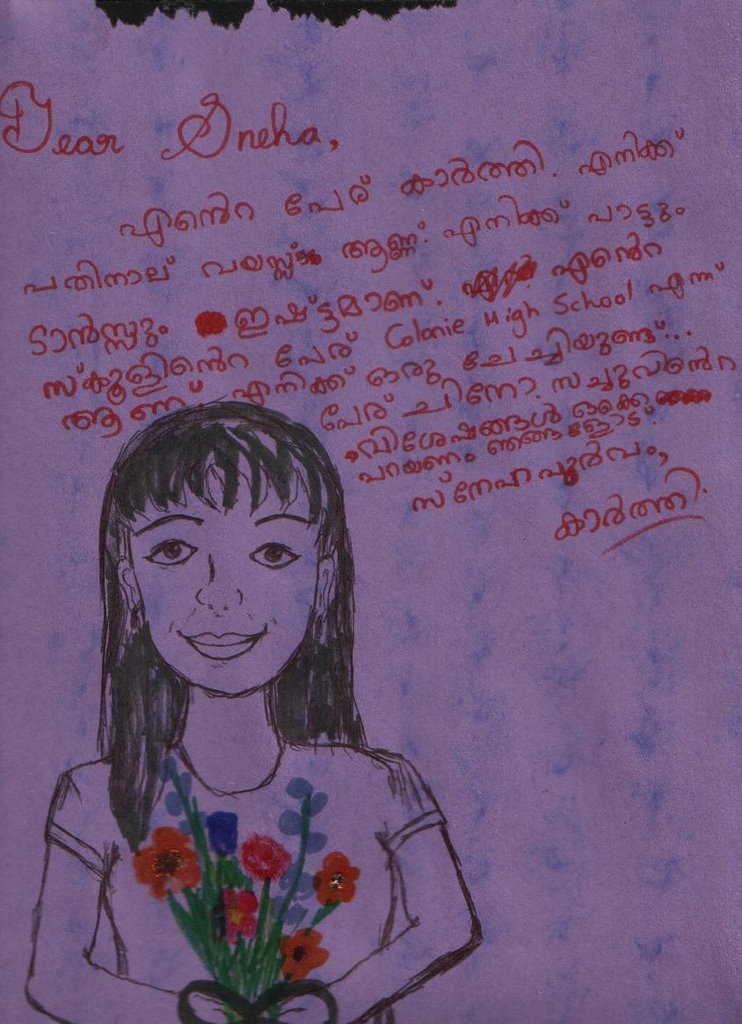 Dear Sneha,
എന്റെ പേര് കാർത്തി. എനിക്ക്
പതിനാല് വയസ്സ് ആണ്. എനിക്ക് പാട്ടും
ടാൻസ്സും ഇഷ്ട്ടമാണ്. എന്റെ
സ്കൂളിന്റെ പേര് Colonie High School എന്ന്
ആണ്. എനിക്ക് ഒരു ചേച്ചിയുണ്ട്...
പേര് ചിന്നോ. സച്ചുവിന്റെ
വിശേഷങ്ങൾ ഒക്കെ
പറയണം ഞങ്ങളോട്.
സ്നേഹപൂർവം,
കാർത്തി.